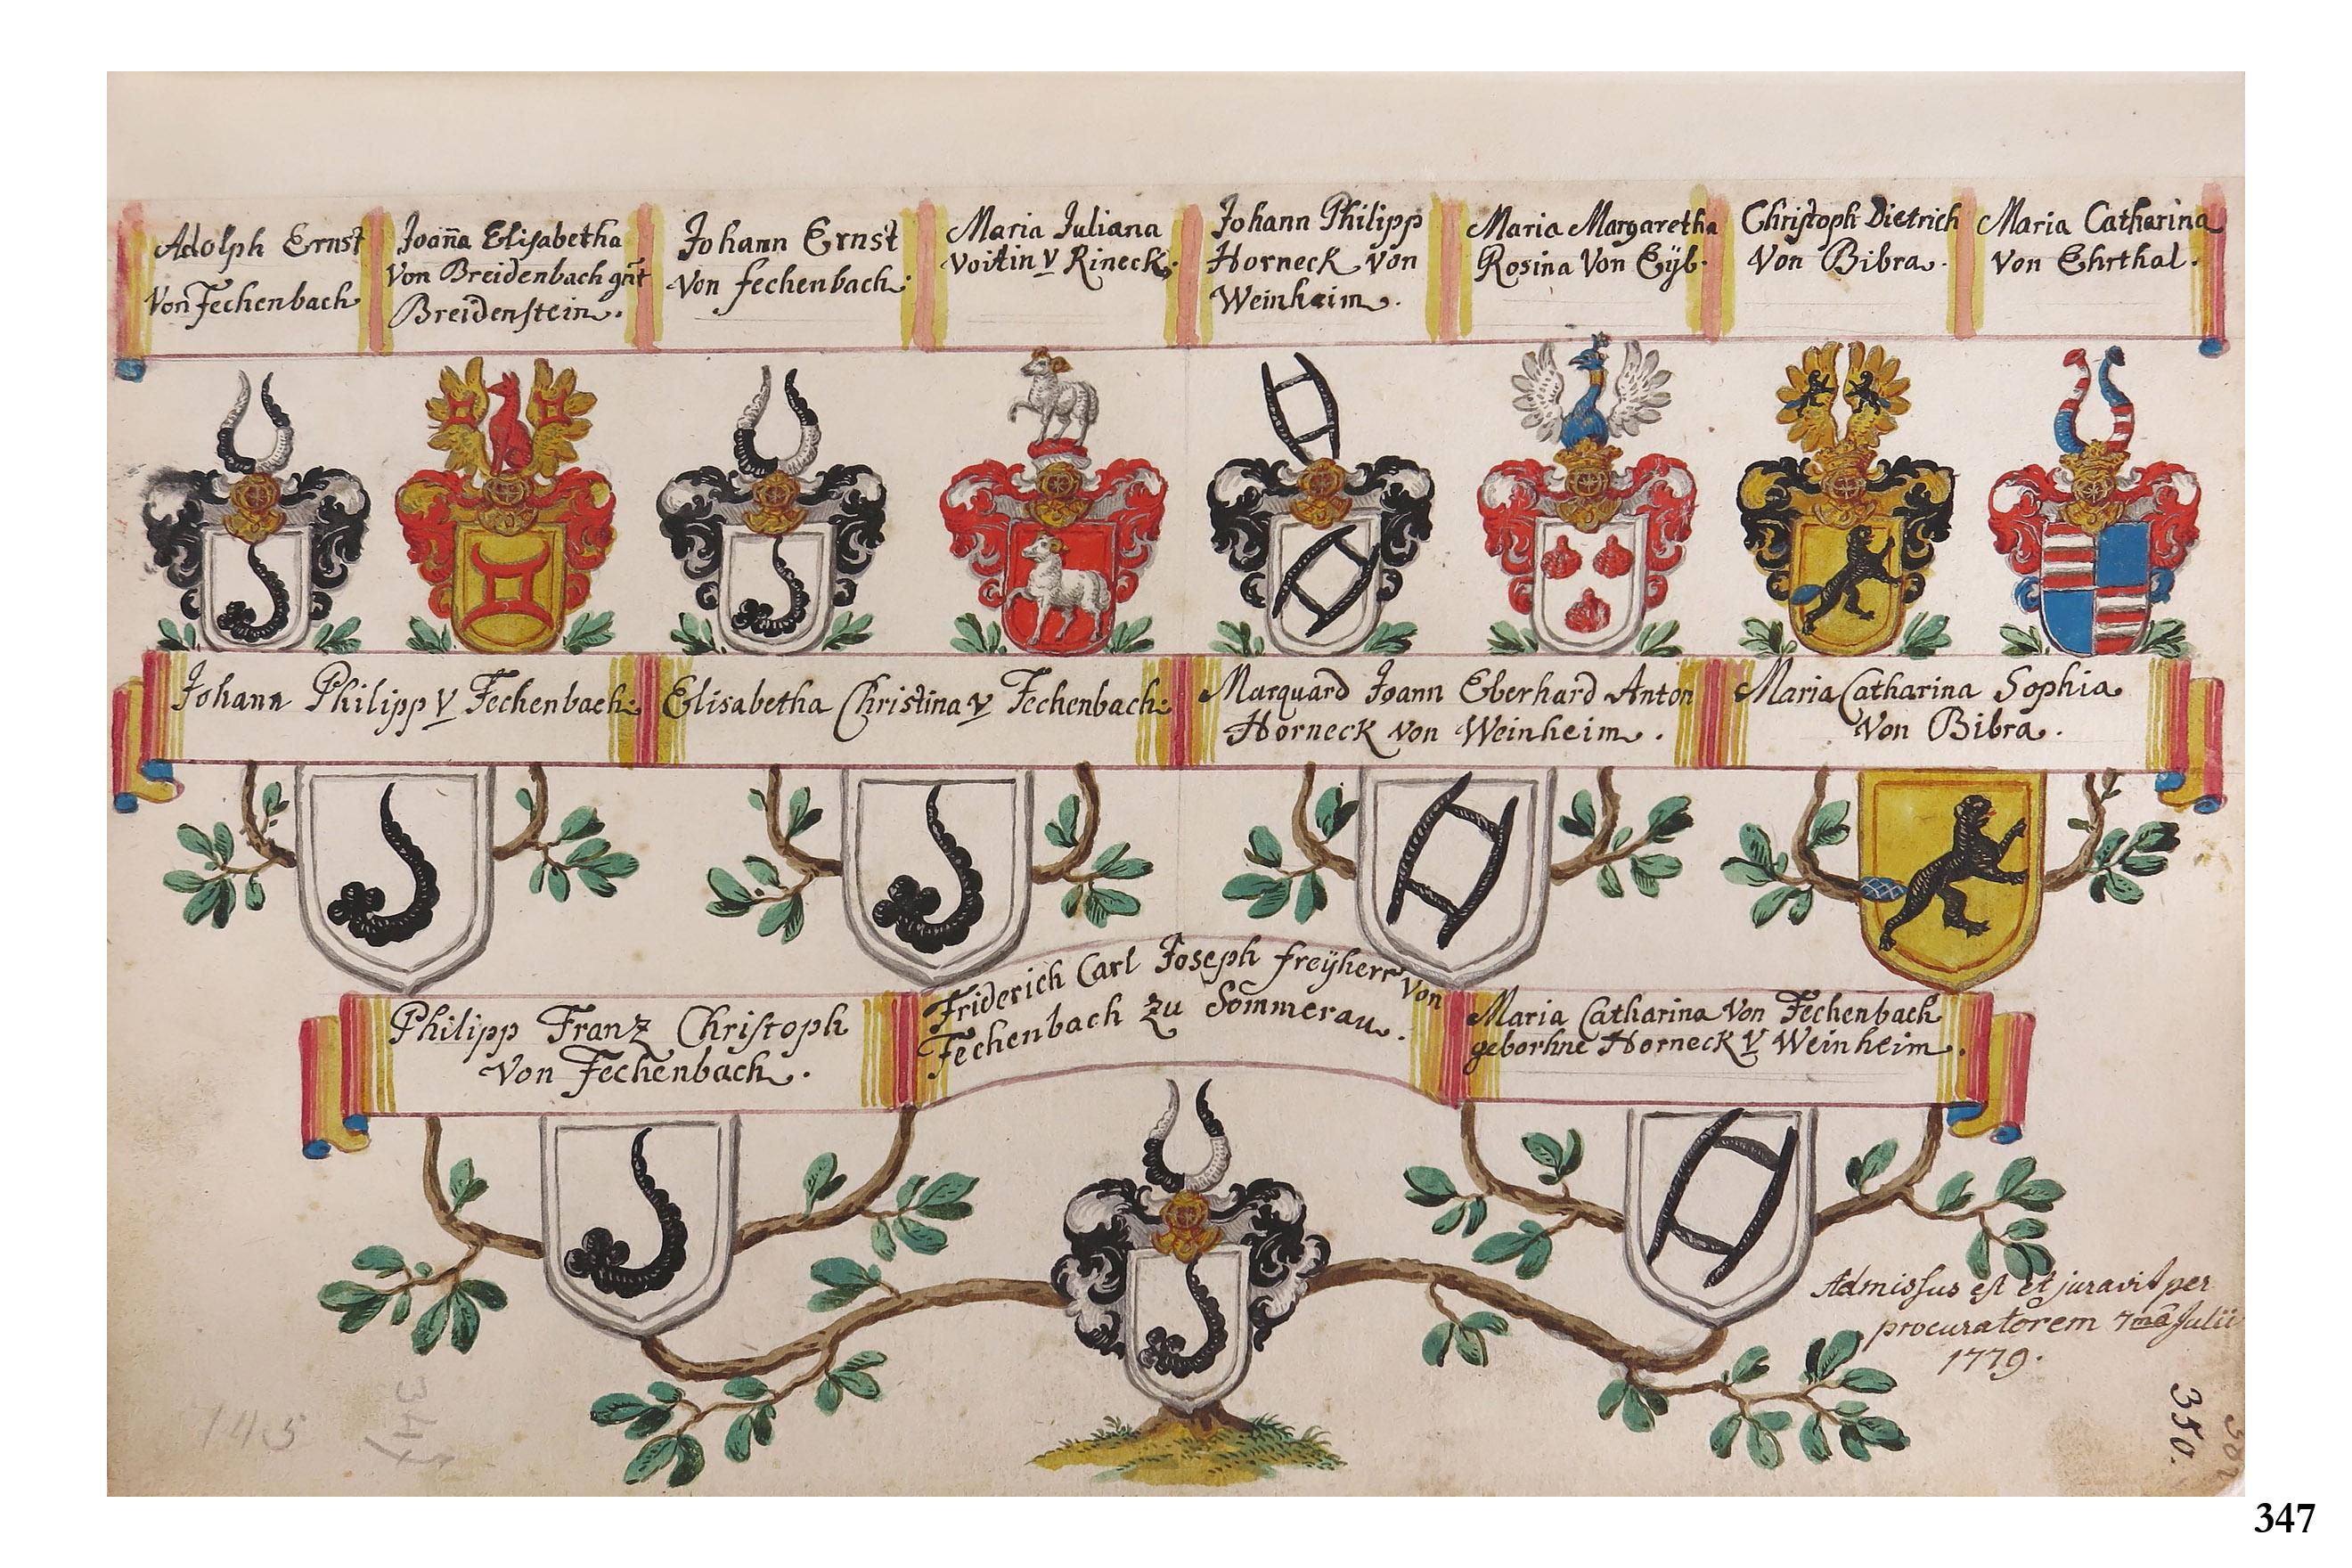 Adolph Ernst
Von Fechenbach
Joan̄a Elisabetha
Von Breidenbach gñt
Breidenstein.
Johann Ernst
Von fechenbach:
Maria Juliana
Voitin v Rineck.
Johann Philipp
Horneck von
Weinheim.
Maria Margaretha
Rosina Von Eÿb.
Christoph Dietrich
Von Bibra.
Maria Catharina
Von Ehrthal.
Johann Philipp V Fechenbach:
Elisabetha Christina V Fechenbach:
Marquard Joann Eberhard Anton
Horneck von Weinheim.
Maria Catharina Sophia
Von Bibra.
Philipp Franz Christoph
Von Fechenbach.
Friderich Carl Joseph freÿherr von
Fechenbach zu Sommerau.
Maria Catharina Von Fechenbach
geborhne Horneck V Weinheim.
Admissus est et juravit per
procuratorem 7mâ Julii
1779.
350.
145
347